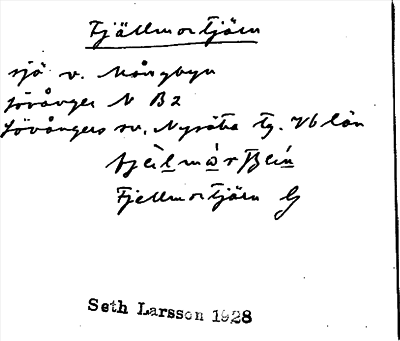 Fjällmortjärn
sjö v. Mångbyn
Lövånger N B2
Lövångers sn, Nysätra tg. Vb län
Fjellmortjärn G
Seth Larsson 1928